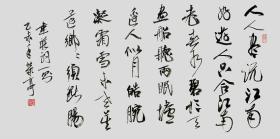 人人盡說江南
好遊人只合江南
老春水碧於天
畫船聽雨眠壚
邊人似月皓腕
凝霜雪未老莫
還鄉還鄉須斷腸
韋莊詞一首